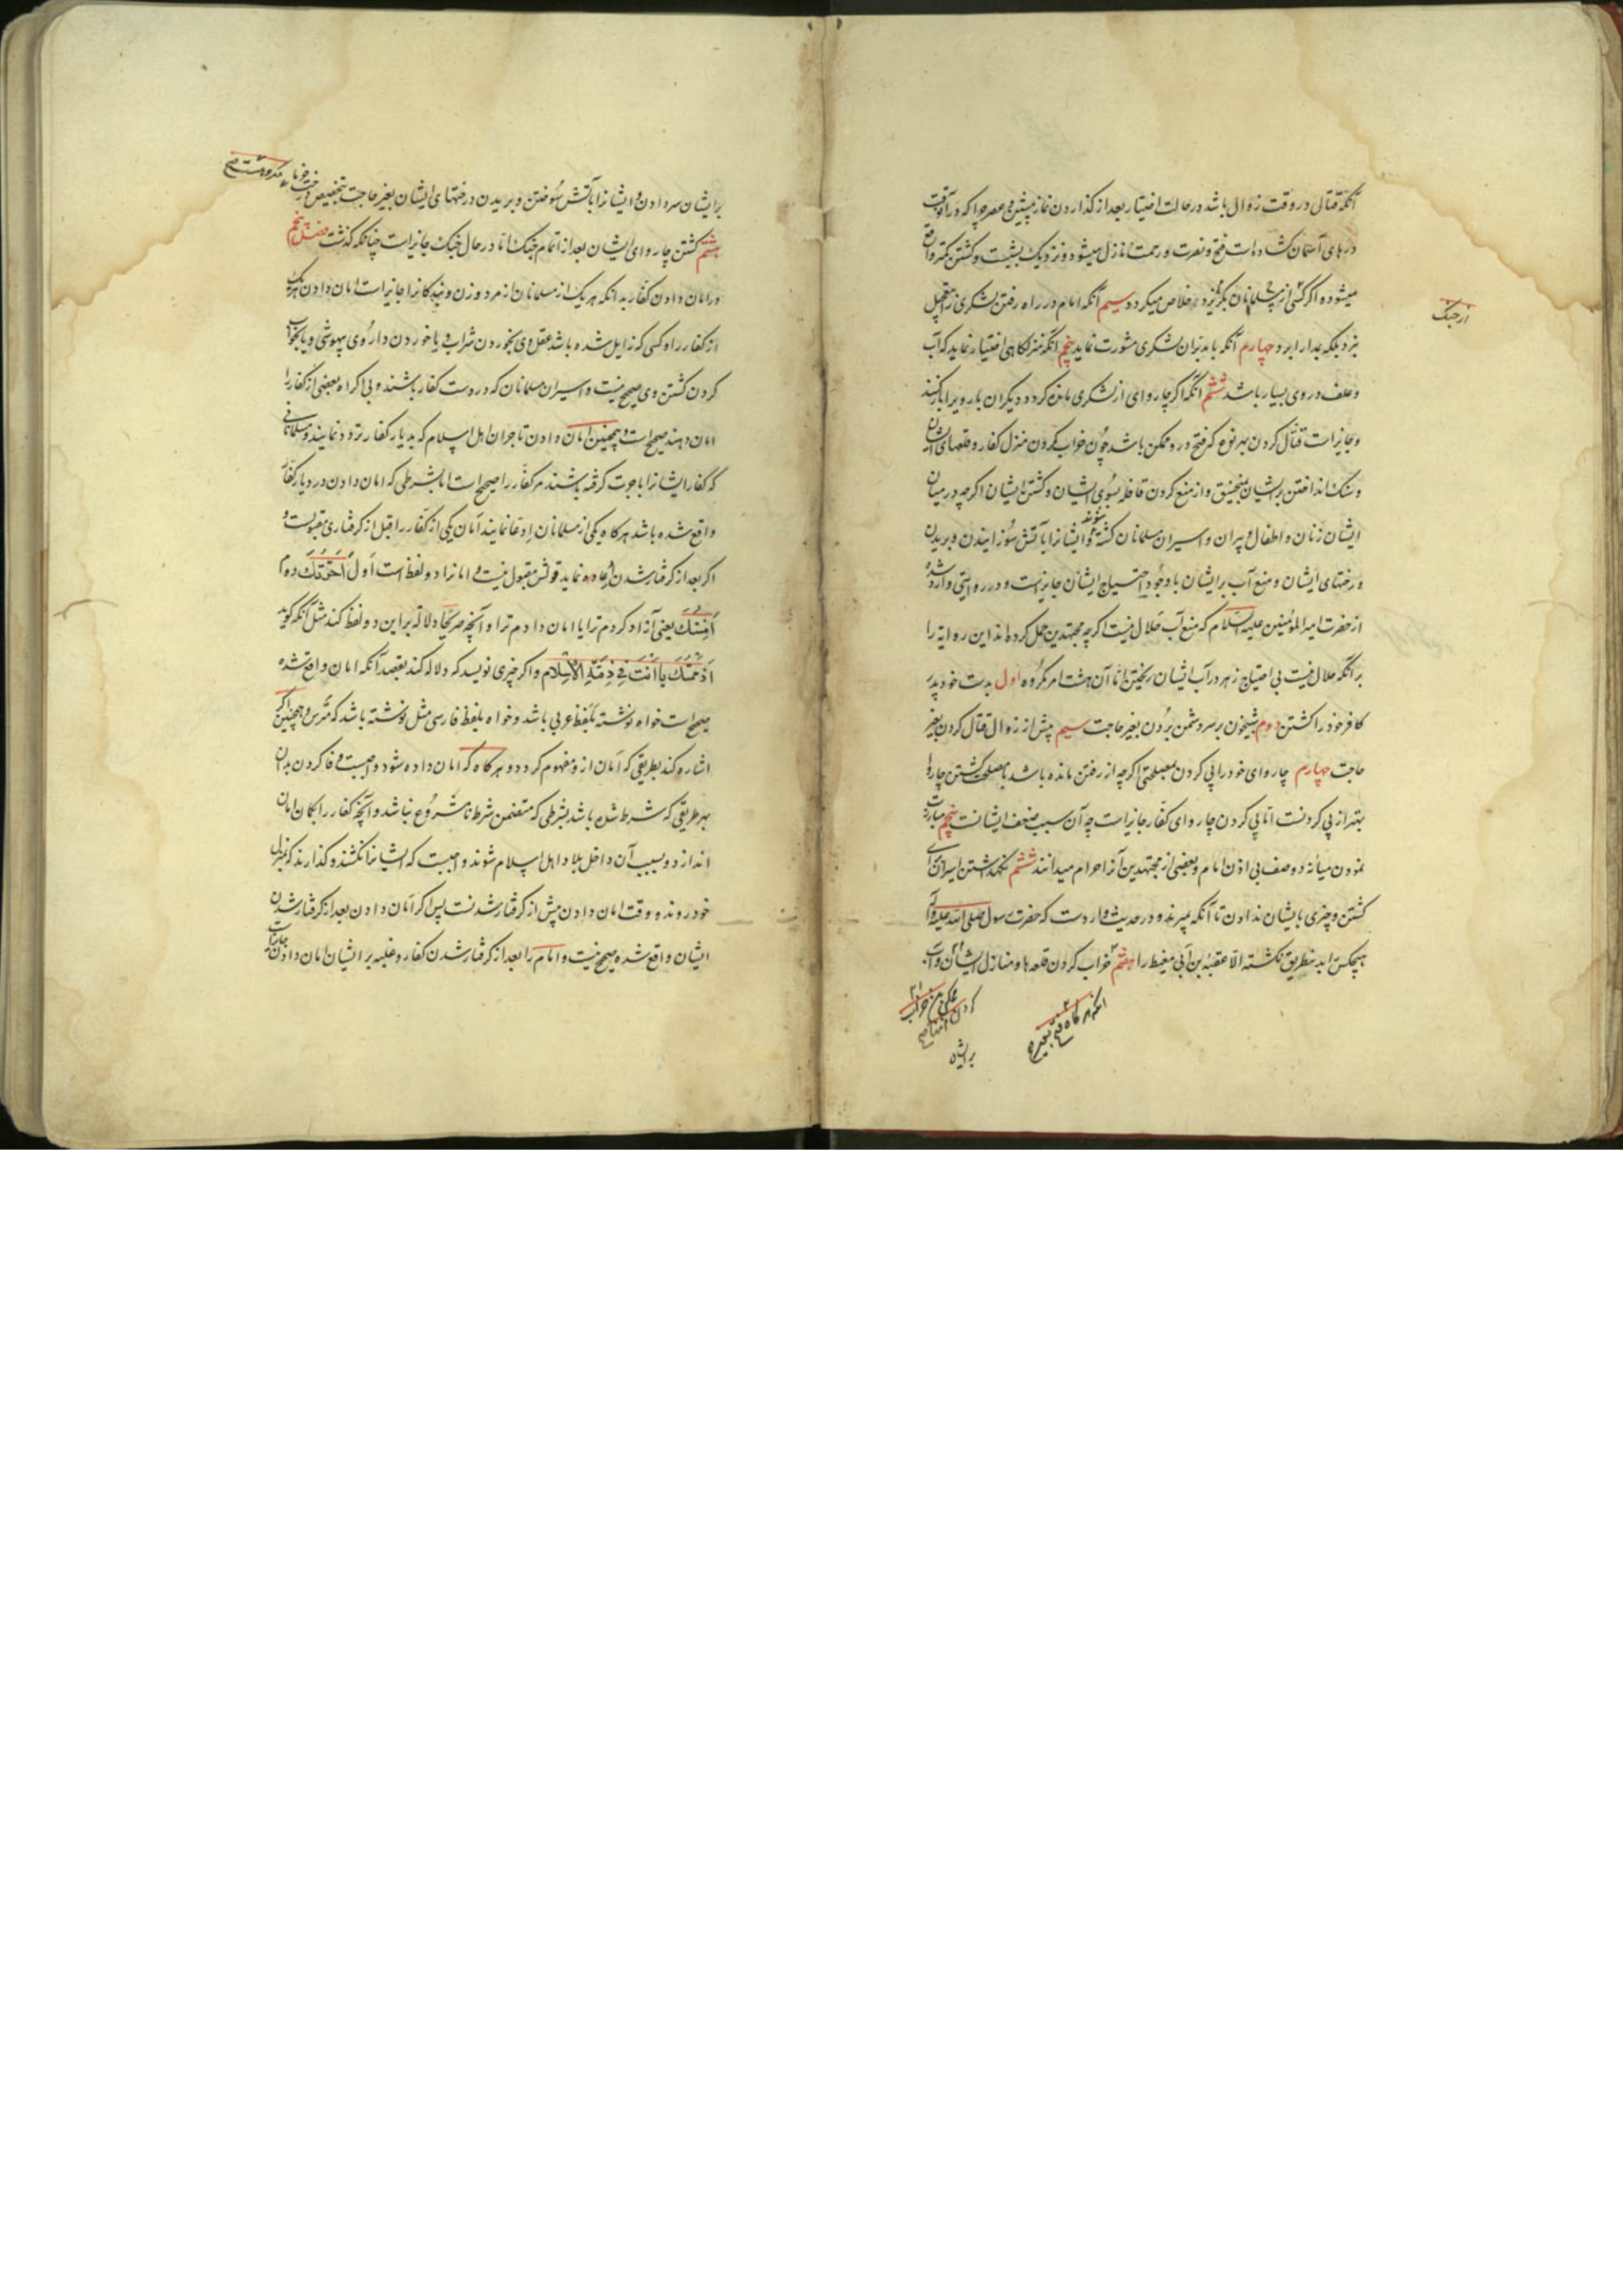 آنکه قتال در وقت زوال باشد در حالت اختیار بعد از گذاردن نماز پیشین و عصر چرا که در آنوقت
درهای آسمان گشاده است فتح و نصرت و رحمت نازل میشود و نزدیک بشبست و کشتن کمتر واقع
میشود و اگر کسی از مسلمانان بگریزد خلاص میگردد سیم آنکه امام در راه رفتن لشکری را بتعجیل
نبرد بلکه بمدارا برد چهارم آنکه با مدبران لشکری مشورت نماید پنجم آنکه منزلگاهی اختیار نماید که آب
و علف در وی بسیار باشد ششم آنکه اگر چاروای از لشکری مانده گردد دیگران بار ویرا بار کنند
و جایز است قتال کردن بهر نوع که فتح در و ممکن باشد چون خراب کردن منزل کفار و قلعهای ایشان
و سنک انداختن بر ایشان بمنجنیق و از منع کردن قافله بسوی ایشان و کشتن ایشان اگرچه در میان
ایشان زنان و اطفال و پیران و اسیران مسلمانان کشته شوند و ایشانرا بآتش سوزانیدن و بریدن
درختهای ایشان و منع آب بر ایشان با وجود احتیاج ایشان جایزست و در روایتی وارد شده
از حضرت امیر المؤمنین علیه السلام که منع آب حلال نیست اگرچه مجتهدین حمل کرده‌اند این روایه را
بر آنکه حلال نیست بی احتیاج زهر در آب ایشان ریختن اما آن هشت امر مکروه اول بدست خود پدر
کافر خود را کشتن دوم شبیخون بر سر دشمن بردن بغیر حاجت سیم پیش از زوال قتال کردن بغیر
حاجت چهارم چاروای خود را پی کردن بمصلحتی اگرچه از رفتن مانده باشد با مصلحت کشتن چاروا
بهتر از پی کردنست اما پی کردن چاروای کفار جایز است چه آن سبب ضعف ایشانست پنجم مبارزت
نمودن میانه دو صف بی اذن امام و بعضی از مجتهدین آنرا حرام میدانند ششم نگهداشتن اسیران برای
کشتن و چیزی بایشان ندادن تا آنکه بمیرند و در حدیث وارد است که حضرت رسول صلی الله علیه و آله
هیچکس را بدینطریق نکشته الا عقبة بن ابی معیط را هفتم خراب کردن قلعه‌ها و منازل ایشان و آب
از جنک
بر ایشان
بر ایشان سر دادن و ایشانرا بآتش سوختن و بریدن درختهای ایشان بغیر حاجت بتخصیص درخت خرما مکروهست
هشتم کشتن چاروای ایشان بعد از اتمام جنک اما در حال جنک جایز است چنانکه گذشت فصل پنجم
در امان دادن کفار بدانکه هر یک از مسلمانان از مرد و زن و بندگانرا جایز است امان دادن هر یک
از کفار را و کسی که زایل شده باشد عقل وی بخوردن شراب و یا خوردن داروی بیهوشی و یا بخواب
کردن کشتن وی صحیح نیست و اسیران مسلمانان که در دست کفار باشند و بی اکراه بعضی از کفار را
امان دهند صحیح است و همچنین امان دادن تاجران اهل اسلام که بدیار کفار تردد نمایند و مسلمانانی
که کفار ایشانرا باجرت گرفته باشند مر کفار را صحیح است اما بشرطی که امان دادن در دیار کفار
واقع شده باشد هرگاه یکی از مسلمانان ادعا نمایند امان یکی از کفار را قبل از گرفتاری مقبولست و
اگر بعد از گرفتار شدن ادعا نماید قولش مقبول نیست و امانرا دو لفظ است اول اَجَرْتُكَ دوم
اٰمَنْتُكَ یعنی آزاد کردم ترا یا امان دادم ترا و آنچه صریحا دلاله براین دو لفظ کند مثل آنکه گوید
اَذْمَمْتُكَ یا اَنْتَ فِی ذِمَّةِ الْاِسْلَام و اگر چیزی نویسد که دلاله کند بقصد آنکه امان واقع شده
صحیح است خواه نوشته بلفظ عربی باشد و خواه بلفظ فارسی مثل نوشته باشد که مترس و همچنین اگر
اشاره کند بطریقی که امان از و مفهوم گردد و هرگاه که امان داده شود واجبست وفا کردن بدان
بهر طریقی که شرط شده باشد بشرطی که متضمن شرط نامشروع نباشد و آنچه کفار را بگمان امان
اندازد و بسبب آن داخل بلاد اهل اسلام شوند واجبست که ایشانرا نکشند و گذارند که بمنزل
خود روند و وقت امان دادن پیش از گرفتار شدنست پس اگر امان دادن بعد از گرفتار شدن
ایشان واقع شده صحیح نیست و امام را بعد از گرفتار شدن کفار و غلبه بر ایشان امان دادن جایز است